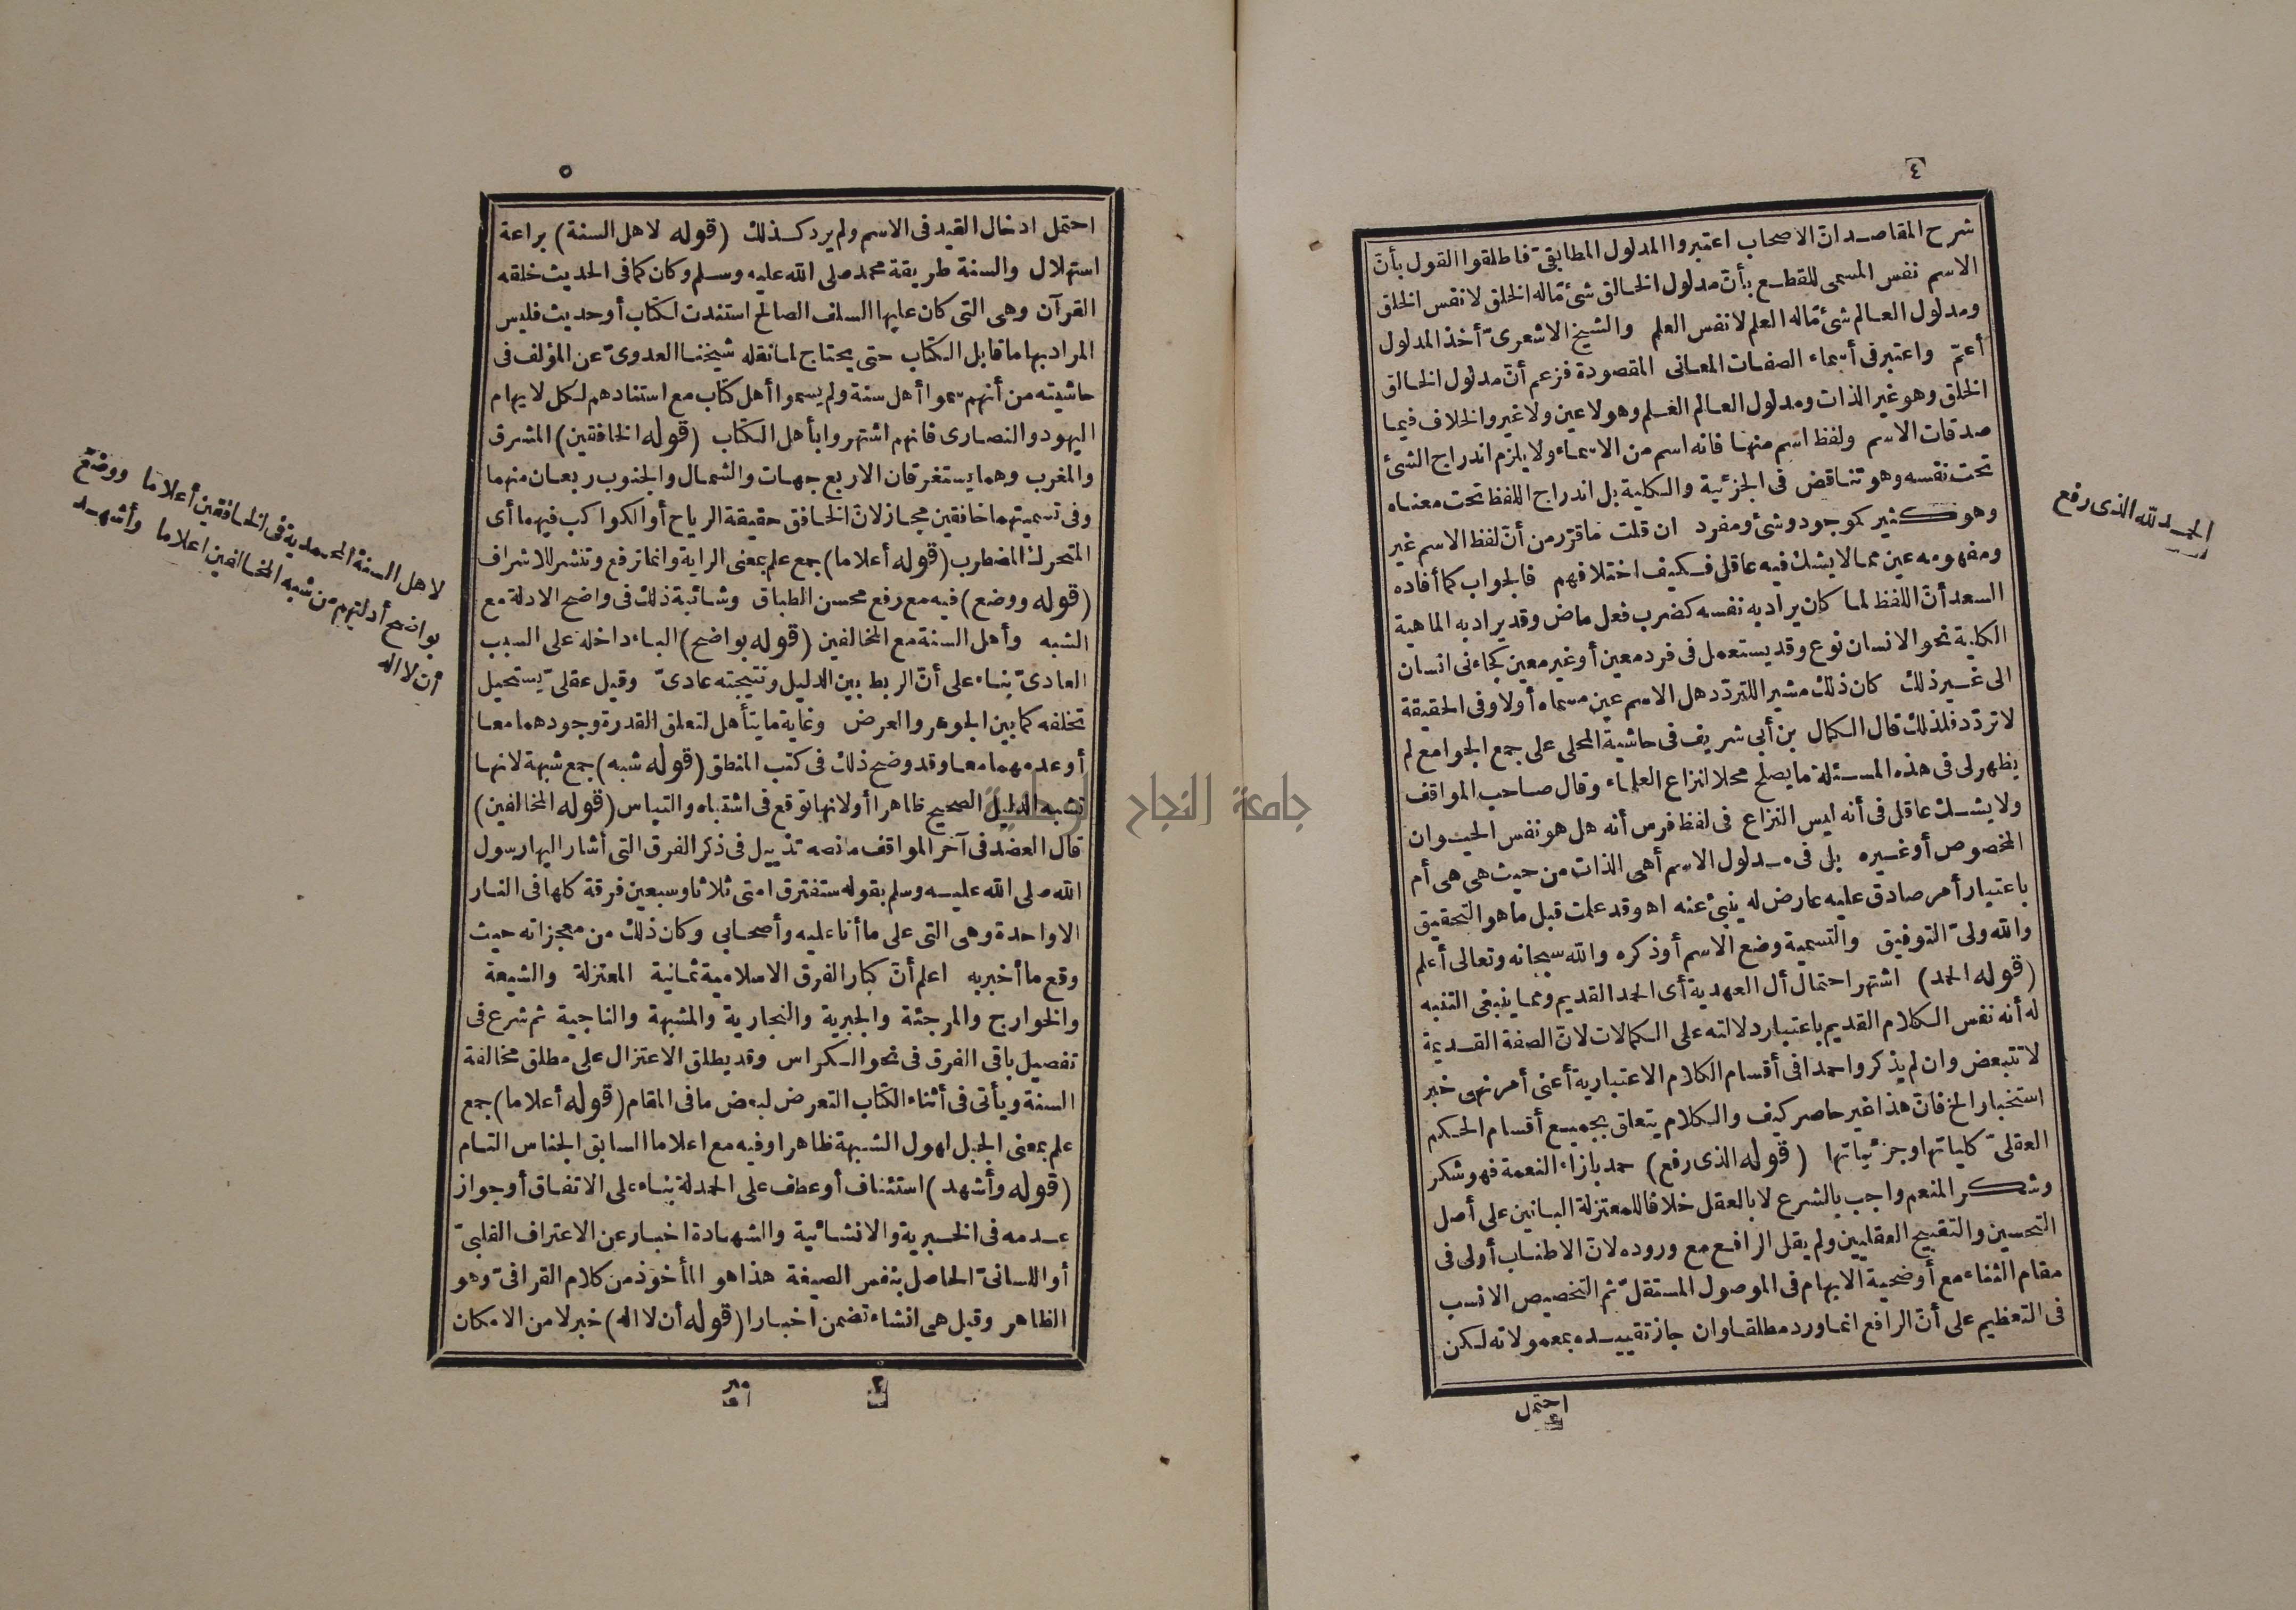 ٤
شرح المقاصد انّ الاصحاب اعتبروا المدلول المطابقىّ فاطلقوا القول بأنّ
الاسم نفس المسمى للقطع بأنّ مدلول الخالق شئ مّا له الخلق لا نفس الخلق
ومدلول العالم شئ مّا له العلم لا نفس العلم والشيخ الاشعرىّ أخذ المدلول
أعمّ واعتبر فى أسماء الصفات المعانى المقصودة فزعم أنّ مدلول الخالق
الخلق وهو غير الذات ومدلول العالم العلم وهو لا عين ولا غير والخلاف فيما
صدقات الاسم ولفظ اسم منها فانه اسم من الاسماء ولا يلزم اندراج الشئ
تحت نفسه وهو تناقض فى الجزئية والكلية بل اندراج اللفظ تحت معناه
وهو كثير كموجود وشئ ومفرد ان قلت ما قرّر من أنّ لفظ الاسم غير
ومفهومه عين مما لا يشك فيه عاقل فكيف اختلافهم فالجواب كما أفاده
السعد أنّ اللفظ لما كان يراد به نفسه كضرب فعل ماض وقد يراد به الماهية
الكلية نحو الانسان نوع وقد يستعمل فى فرد معين أو غير معين كجاءنى انسان
الى غير ذلك كان ذلك مشيرا للتردّد هل الاسم عين مسماه أولا وفى الحقيقة
لا تردّد فلذلك قال الكمال بن أبى شريف فى حاشية المحلى على جمع الجوامع لم
يظهر لى فى هذه المسئلة ما يصلح محلا لنزاع العلماء وقال صاحب المواقف
ولا يشك عاقل فى أنه ليس النزاع فى لفظ فرس أنه هل هو نفس الحيوان
المخصوص أو غيره بل فى مدلول الاسم أهى الذات من حيث هى هى أم
باعتبار أمر صادق عليه عارض له ينبئ عنه اه وقد علمت قبل ما هو التحقيق
والله ولىّ التوفيق والتسمية وضع الاسم أو ذكره والله سبحانه وتعالى أعلم
(قوله الحمد) اشتهر احتمال أل العهدية أى الحمد القديم ومما ينبغى التنبه
له أنه نفس الكلام القديم باعتبار دلالته على الكمالات لانّ الصفة القديمة
لا تتبعض وان لم يذكروا حمدا فى أقسام الكلام الاعتبارية أعنى أمر نهى خبر
استخبار الخ فانّ هذا غير حاصر كيف والكلام يتعلق بجميع أقسام الحكم
العقلىّ كلياتها وجزئياتها (قوله الذى رفع) حمد بازاء النعمة فهو شكر
وشكر المنعم واجب بالشرع لا بالعقل خلافا للمعتزلة البانين على أصل
التحسين والتقبيح العقليين ولم يقل الرافع مع وروده لانّ الاطناب أولى فى
مقام الثناء مع أوضحية الابهام فى الموصول المستقلّ ثم التخصيص الانسب
فى التعظيم على أنّ الرافع انما ورد مطلقا وان جاز تقييده بمعمولاته لكن
احتمل
الحمد لله الذى رفع
٥
احتمل ادخال القيد فى الاسم ولم يرد كذلك (قوله لاهل السنة) براعة
استهلال والسنة طريقة محمد صلى الله عليه وسلم وكان كما فى الحديث خلقه
القرآن وهى التى كان عليها السلف الصالح استندت لكتاب أو حديث فليس
المراد بها ما قابل الكتاب حتى يحتاج لما نقله شيخنا العدوىّ عن المؤلف فى
حاشيته من أنهم سموا أهل سنة ولم يسموا أهل كتاب مع استنادهم لكل لايهام
اليهود والنصارى فانهم اشتهروا بأهل الكتاب (قوله الخافقين) المشرق
والمغرب وهما يستغرقان الاربع جهات والشمال والجنوب ربعان منهما
وفى تسميتهما خافقين مجاز لانّ الخافق حقيقة الرياح أو الكواكب فيهما أى
المتحرك المضطرب (قوله أعلاما) جمع علم بمعنى الراية وانما ترفع وتنشر للاشراف
(قوله ووضع) فيه مع رفع محسن الطباق وشائبة ذلك فى واضح الادلة مع
الشبه وأهل السنة مع المخالفين (قوله بواضح) الباء داخلة على السبب
العادىّ بناء على أنّ الربط بين الدليل ونتيجته عادىّ وقيل عقلىّ يستحيل
تخلفه كما بين الجوهر والعرض وغاية ما يتأهل لتعلق القدرة وجودهما معا
أو عدمهما معا وقد وضح ذلك فى كتب المنطق (قوله شبه) جمع شبهة لانها
تشبه الدليل الصحيح ظاهرا أو لانها توقع فى اشتباه والتباس (قوله المخالفين)
قال العضد فى آخر المواقف ما نصه تذييل فى ذكر الفرق التى أشار اليها رسول
الله صلى الله عليه وسلم بقوله ستفترق امتى ثلاثا وسبعين فرقة كلها فى النار
الا واحدة وهى التى على ما أنا عليه وأصحابى وكان ذلك من معجزاته حيث
وقع ما أخبر به اعلم أنّ كبار الفرق الاسلامية ثمانية المعتزلة والشيعة
والخوارج والمرجئة والجبرية والنجارية والمشبهة والناجية ثم شرع فى
تفصيل باقى الفرق فى نحو الكراس وقد يطلق الاعتزال على مطلق مخالفة
السنة ويأتى فى أثناء الكتاب التعرض لبعض ما فى المقام (قوله أعلاما) جمع
علم بمعنى الجبل لهول الشبهة ظاهرا وفيه مع اعلاما السابق الجناس التام
(قوله وأشهد) استئناف أو عطف على الحمدلة بناء على الاتفاق أو جواز
عدمه فى الخبرية والانشائية والشهادة اخبار عن الاعتراف القلبىّ
أو اللسانىّ الحاصل بنفس الصيغة هذا هو المأخوذ من كلام القرافىّ وهو
الظاهر وقيل هى انشاء تضمن اخبارا (قوله أن لا اله) خبر لا من الامكان
لاهل السنة المحمدية فى الخافقين أعلاما ووضع
بواضح أدلتهم من شبه المخالفين اعلاما وأشهد
أن لا اله
٢
جامعة النجاح الوطنية